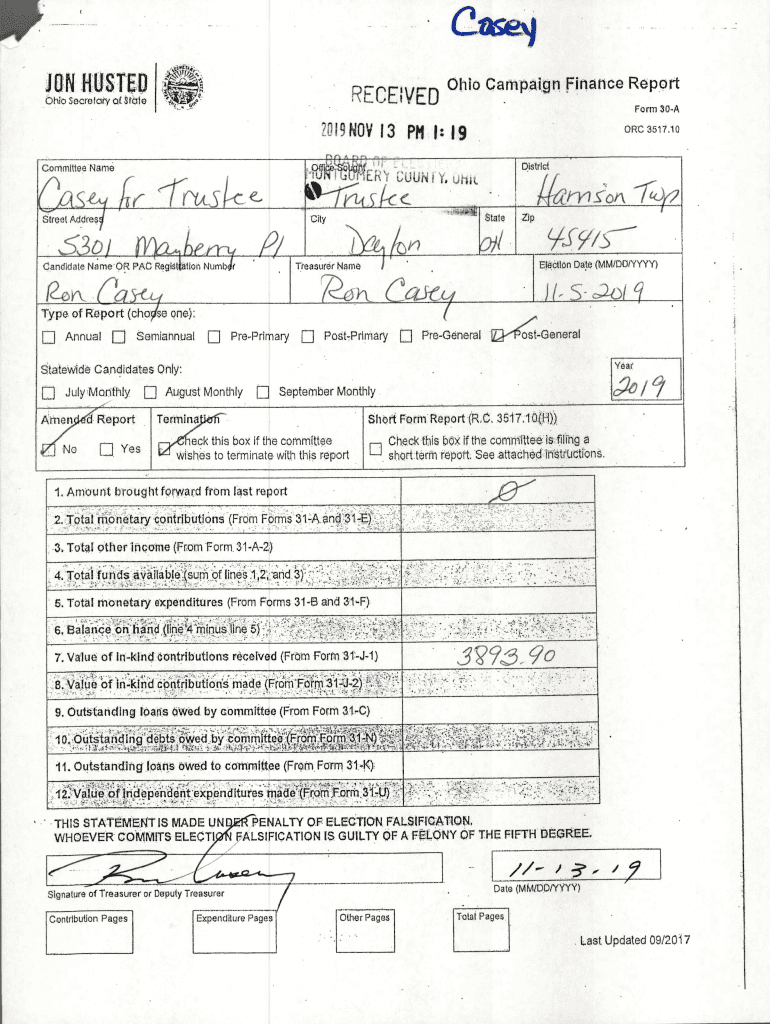 Casey
JON HUSTED
Ohio Secretary of State
RECEIVED
Ohio Campaign Finance Report
Form 30-A
2019 NOV 13 PM 1:19
ORC 3517.10
BOARD OF ELEC
MONTGOMERY COUNTY, OHIO
Committee Name
Office Sought
District
Casey for Trustee
Trustee
Harrison Twp
Street Address
City
State
Zip
5301 Mayberry Pl
Dayton
OH
45415
Candidate Name OR PAC Registration Number
Treasurer Name
Election Date (MM/DD/YYYY)
Ron Casey
Ron Casey
11-5-2019
Type of Report (choose one):
Annual
Semiannual
Pre-Primary
Post-Primary
Pre-General
Post-General
Statewide Candidates Only:
Year
July Monthly
August Monthly
September Monthly
2019
Amended Report
Termination
Short Form Report (R.C. 3517.10(H))
No
Yes
Check this box if the committee
wishes to terminate with this report
Check this box if the committee is filing a
short term report. See attached instructions.
1. Amount brought forward from last report
0
2. Total monetary contributions (From Forms 31-A and 31-E)
3. Total other income (From Form 31-A-2)
4. Total funds available (sum of lines 1,2, and 3)
5. Total monetary expenditures (From Forms 31-B and 31-F)
6. Balance on hand (line 4 minus line 5)
7. Value of in-kind contributions received (From Form 31-J-1)
3893.90
8. Value of in-kind contributions made (From Form 31-J-2)
9. Outstanding loans owed by committee (From Form 31-C)
10. Outstanding debts owed by committee (From Form 31-N)
11. Outstanding loans owed to committee (From Form 31-K)
12. Value of independent expenditures made (From Form 31-U)
THIS STATEMENT IS MADE UNDER PENALTY OF ELECTION FALSIFICATION.
WHOEVER COMMITS ELECTION FALSIFICATION IS GUILTY OF A FELONY OF THE FIFTH DEGREE.
Ron Casey
11-13-19
Signature of Treasurer or Deputy Treasurer
Date (MM/DD/YYYY)
Contribution Pages
Expenditure Pages
Other Pages
Total Pages
Last Updated 09/2017